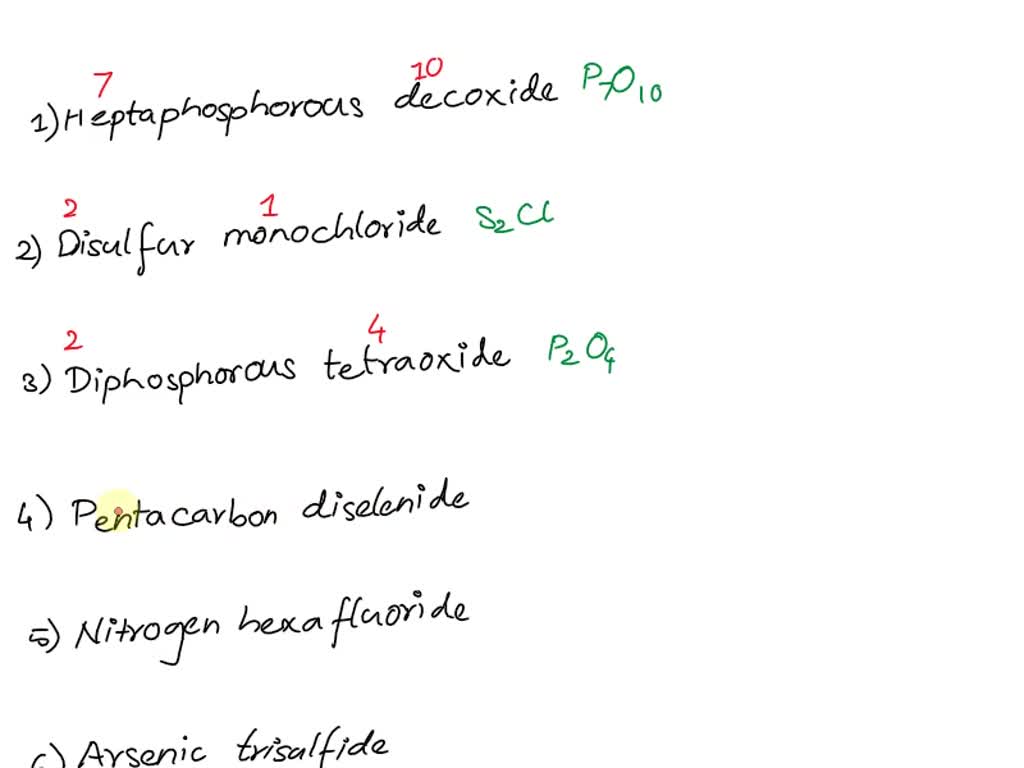 7 10
1) Heptaphosphorous decoxide P7O10
2 1
2) Disulfur monochloride S2Cl
2 4
3) Diphosphorous tetraoxide P2O4
4) Pentacarbon diselenide
5) Nitrogen hexafluoride
6) Arsenic trisulfide